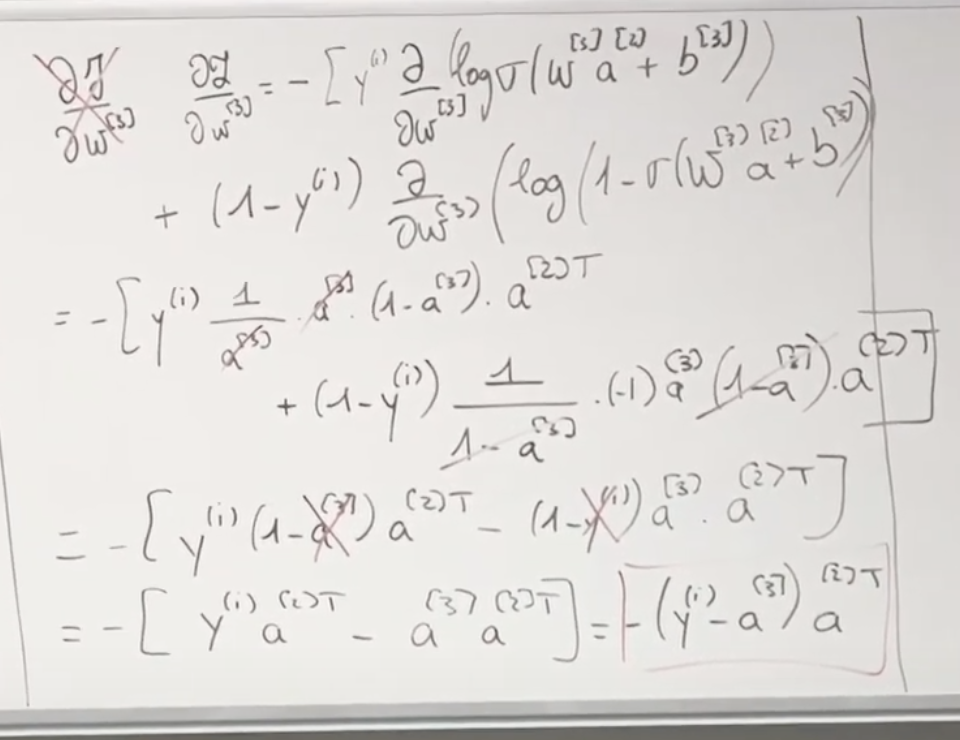 ∂J/∂w^[3] ∂L/∂w^[3] = - [ y^(i) ∂/∂w^[3] (log σ(w^[3] a^[2] + b^[3]))
+ (1-y^(i)) ∂/∂w^[3] (log (1-σ(w^[3] a^[2] + b^[3])
= - [ y^(i) 1/a^[3] · a^[3] · (1-a^[3]) · a^[2]T
+ (1-y^(i)) 1/(1-a^[3]) · (-1) a^[3] (1-a^[3]) · a^[2]T ]
= - [ y^(i) (1-a^[3]) a^[2]T - (1-y^(i)) a^[3] · a^[2]T ]
= - [ y^(i) a^[2]T - a^[3] a^[2]T ] = - (y^(i) - a^[3]) a^[2]T